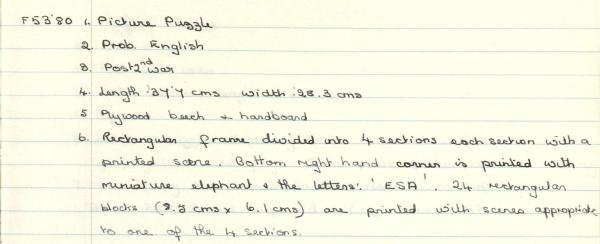 F53'80 1. Picture Puzzle
2. Prob. English
3. Post 2nd War
4. Length: 37.7 cms width: 28.3 cms
5 Plywood beech & hardboard
6. Rectangular frame divided into 4 sections each section with a
printed scene. Bottom right hand corner is printed with
miniature elephant & the letters: 'ESA'. 24 rectangular
blocks (9.3 cms x 6.1 cms) are printed with scenes appropriate
to one of the 4 sections.